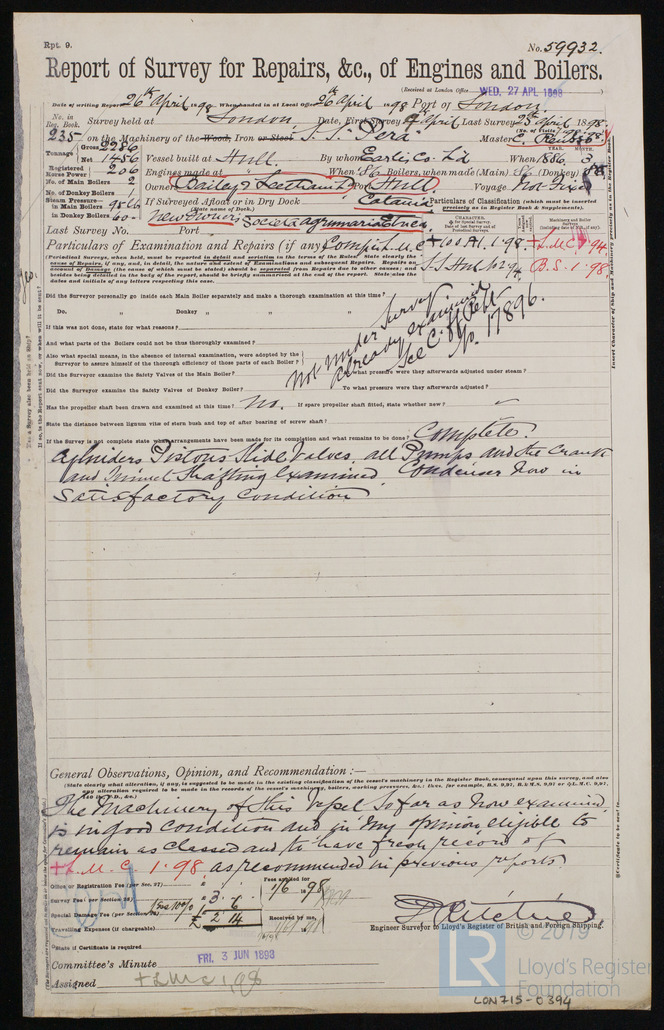 Rpt. 9.
No. 59932.
Report of Survey for Repairs, &c., of Engines and Boilers.
(Received at London Office WED, 27 APL 1898)
Date of writing Report 26th April 1898 When handed in at Local Office 26th April 1898 Port of London
No. in Reg. Book. Survey held at London Date, First Survey 4 April Last Survey 25 April 1898
235 on the Machinery of the Wood, Iron or Steel S.S. "Pera" Master C.
Tonnage Gross 2286
Net 1486
Vessel built at Hull. By whom Earle's Co. Ld When 1886. 3
YEAR. MONTH.
Registered Horse Power 206
Engines made at When 86 Boilers, when made (Main) 86 (Donkey)
No. of Main Boilers 2
Owners Bailey & Leetham Ld Port Hull Voyage Not fixed
No. of Donkey Boilers 1
Steam Pressure in Main Boilers
If Surveyed Afloat or in Dry Dock Catania
(State name of Dock.)
Particulars of Classification (which must be inserted precisely as in Register Book & Supplements).
in Donkey Boilers 60
New Owners Societa agrumaria Etnea
Last Survey No. Port
Particulars of Examination and Repairs (if any) Complt. L.M.C.
+100A1. 1.98 +L.M.C. 94
S.S. Hull No 2 94 B.S. 1.98
(Periodical Surveys, when held, must be reported in detail and seriatim in the terms of the Rules. State clearly the cause of Repairs, if any, and, in detail, the nature and extent of Examinations and subsequent Repairs. Repairs on account of Damage (the cause of which must be stated) should be separated from Repairs due to other causes; and besides being detailed in the body of the report, should be briefly summarised at the end of the report. State also the dates and initials of any letters respecting this case.
Did the Surveyor personally go inside each Main Boiler separately and make a thorough examination at this time?
Do. " Donkey " " "
If this was not done, state for what reasons?
And what parts of the Boilers could not be thus thoroughly examined?
Also what special means, in the absence of internal examination, were adopted by the Surveyor to assure himself of the thorough efficiency of those parts of each Boiler?
Not under Survey
already examined
See C. H. Rpt
No. 17896.
Did the Surveyor examine the Safety Valves of the Main Boiler? To what pressure were they afterwards adjusted under steam?
Did the Surveyor examine the Safety Valves of Donkey Boiler? To what pressure were they afterwards adjusted?
Has the propeller shaft been drawn and examined at this time? No. If spare propeller shaft fitted, state whether new?
State the distance between lignum vitæ of stern bush and top of after bearing of screw shaft?
If the Survey is not complete state what arrangements have been made for its completion and what remains to be done; Complete.
Cylinders Pistons Slide Valves all Pumps and the Crank
and Tunnel Shafting Examined. Condenser Now in
Satisfactory Condition
General Observations, Opinion, and Recommendation:—
(State clearly what alteration, if any, is suggested to be made in the existing classification of the vessel's machinery in the Register Book, consequent upon this survey, and also any alteration required to be made in the records of the vessel's machinery, boilers, working pressures, &c.) thus,
The Machinery of this Vessel So far as Now examined
is in good condition and in my opinion eligible to
remain as classed and to have fresh record of
+L.M.C. 1.98 as recommended in previous reports
Office or Registration Fee (per Sec. 27)
Fees applied for 1/6 1898
Survey Fee (per Section 28) 3
Special Damage Fee (per Section 28)
£ 2 14
Travelling Expenses (if chargeable)
Received by me,
Engineer Surveyor to Lloyd's Register of British and Foreign Shipping.
State if Certificate is required
Committee's Minute FRI. 3 JUN 1898
Assigned +LMC 1.98
© 2019
LR
Lloyd's Register
Foundation
LON715-0394